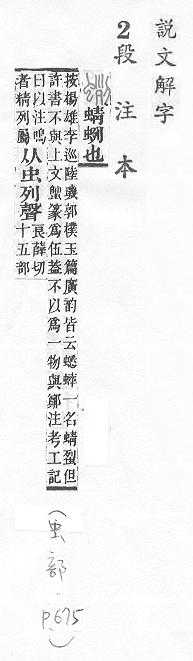 説文解字
2段注本
蜻蛚也
按楊雄李巡陸璣郭樸玉篇廣韵皆云蟋蟀一名蜻蛚但
許書不與上文篆爲伍蓋不以爲一物與鄭注考工記
曰以注鳴
者精列屬
从虫列聲
良薛切
十五部
(虫部.P.675)